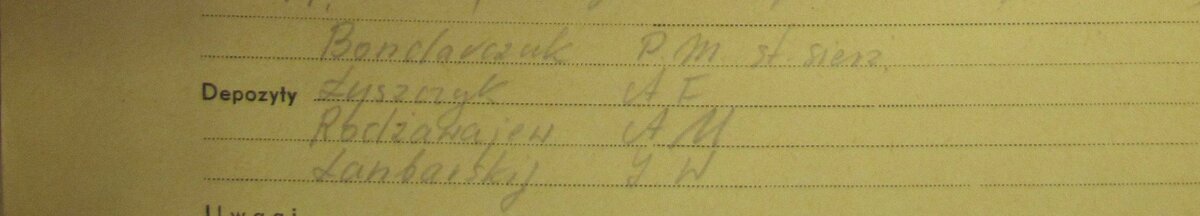 Bondarczuk P. M. st. sierż.
Depozyty Łyszczyk A F
Rodżawajew A M
Łanbarskij J W
Uwagi